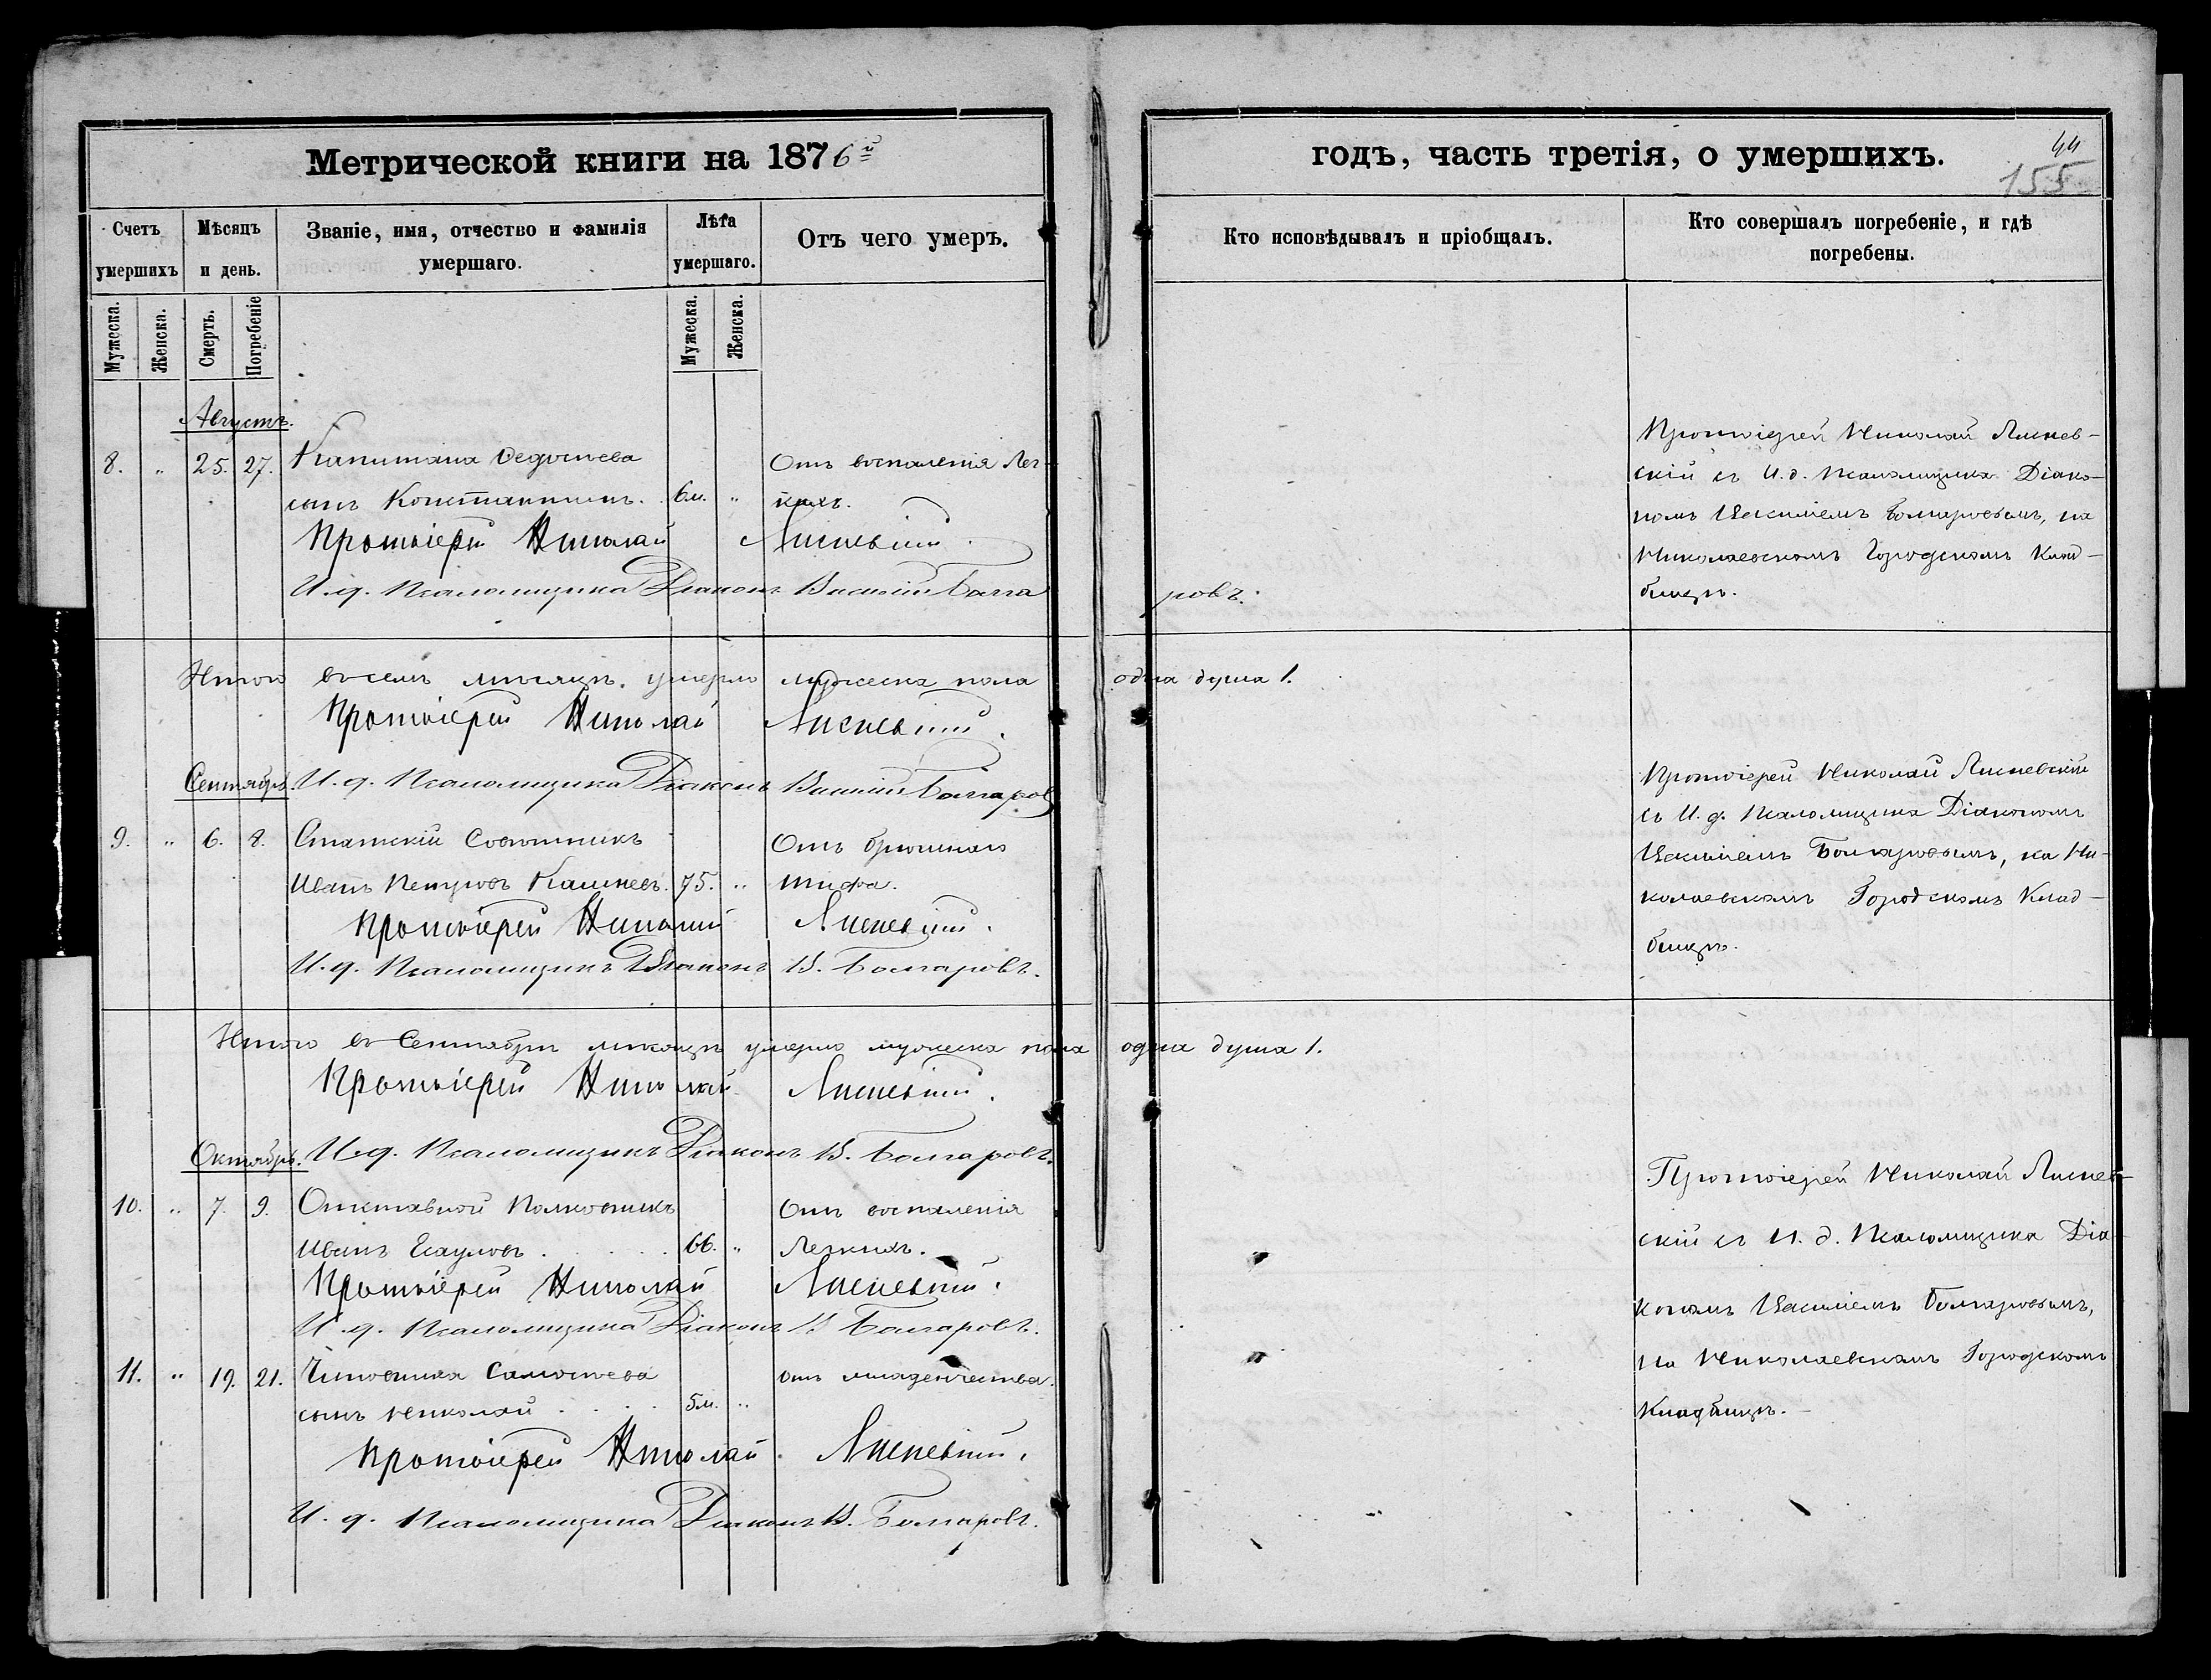 Метрической книги на 1876й
годъ, часть третія, о умершихъ.
44
155
Счетъ умершихъ
Мѣсяцъ и день.
Званіе, имя, отчество и фамилія умершаго.
Лѣта умершаго.
Отъ чего умеръ.
Кто исповѣдывалъ и пріобщалъ.
Кто совершалъ погребеніе, и гдѣ погребены.
Мужеска.
Женска.
Смерть.
Погребеніе
Мужеска.
Женска.
Августъ.
8. „ 25. 27. Капитана Федотьева
сынъ Константинъ. 6м. „
Отъ воспаленія Лег-
кихъ.
Протоіерей Николай Лисневскій
И. д. Псаломщика Діаконъ Василій Болга
ровъ.
Протоіерей Николай Лиснев-
скій съ И. д. Псаломщика Діако-
номъ Василіемъ Болгаровымъ, на
Николаевскомъ Городскомъ Клад-
бищѣ.
Итого въ семъ мѣсяцѣ умерло мужеска пола одна душа 1.
Протоіерей Николай Лисневскій.
Сентябрь. И. д. Псаломщика Діаконъ Василій Болгаров
9. „ 6. 8. Статскій Совѣтникъ
Иванъ Петровъ 75. „
Отъ брюшнаго
тифа.
Протоіерей Николай Лисневскій.
И. д. Псаломщикъ Діаконъ В. Болгаровъ.
Протоіерей Николай Лисневскій
съ И. д. Псаломщика Діакономъ
Василіемъ Болгаровымъ, на Ни-
колаевскомъ Городскомъ Клад-
бищѣ.
Итого въ Сентябрѣ мѣсяцѣ умерло мужеска пола одна душа 1.
Протоіерей Николай Лисневскій.
Октябрь. И. д. Псаломщикъ Діаконъ В. Болгаровъ.
10. „ 7. 9. Отставной Полковникъ
Иванъ Есауловъ 66. „
Отъ воспаленія
Легкихъ.
Протоіерей Николай Лисневскій.
И. д. Псаломщика Діаконъ В. Болгаровъ.
11. „ 19. 21. Чиновника
сынъ Николай 5м. „
отъ младенчества.
Протоіерей Николай Лисневскій.
И. д. Псаломщика Діаконъ В. Болгаровъ.
Протоіерей Николай Лиснев-
скій съ И. д. Псаломщика Діа-
кономъ Василіемъ Болгаровымъ,
на Николаевскомъ Городскомъ
Кладбищѣ.